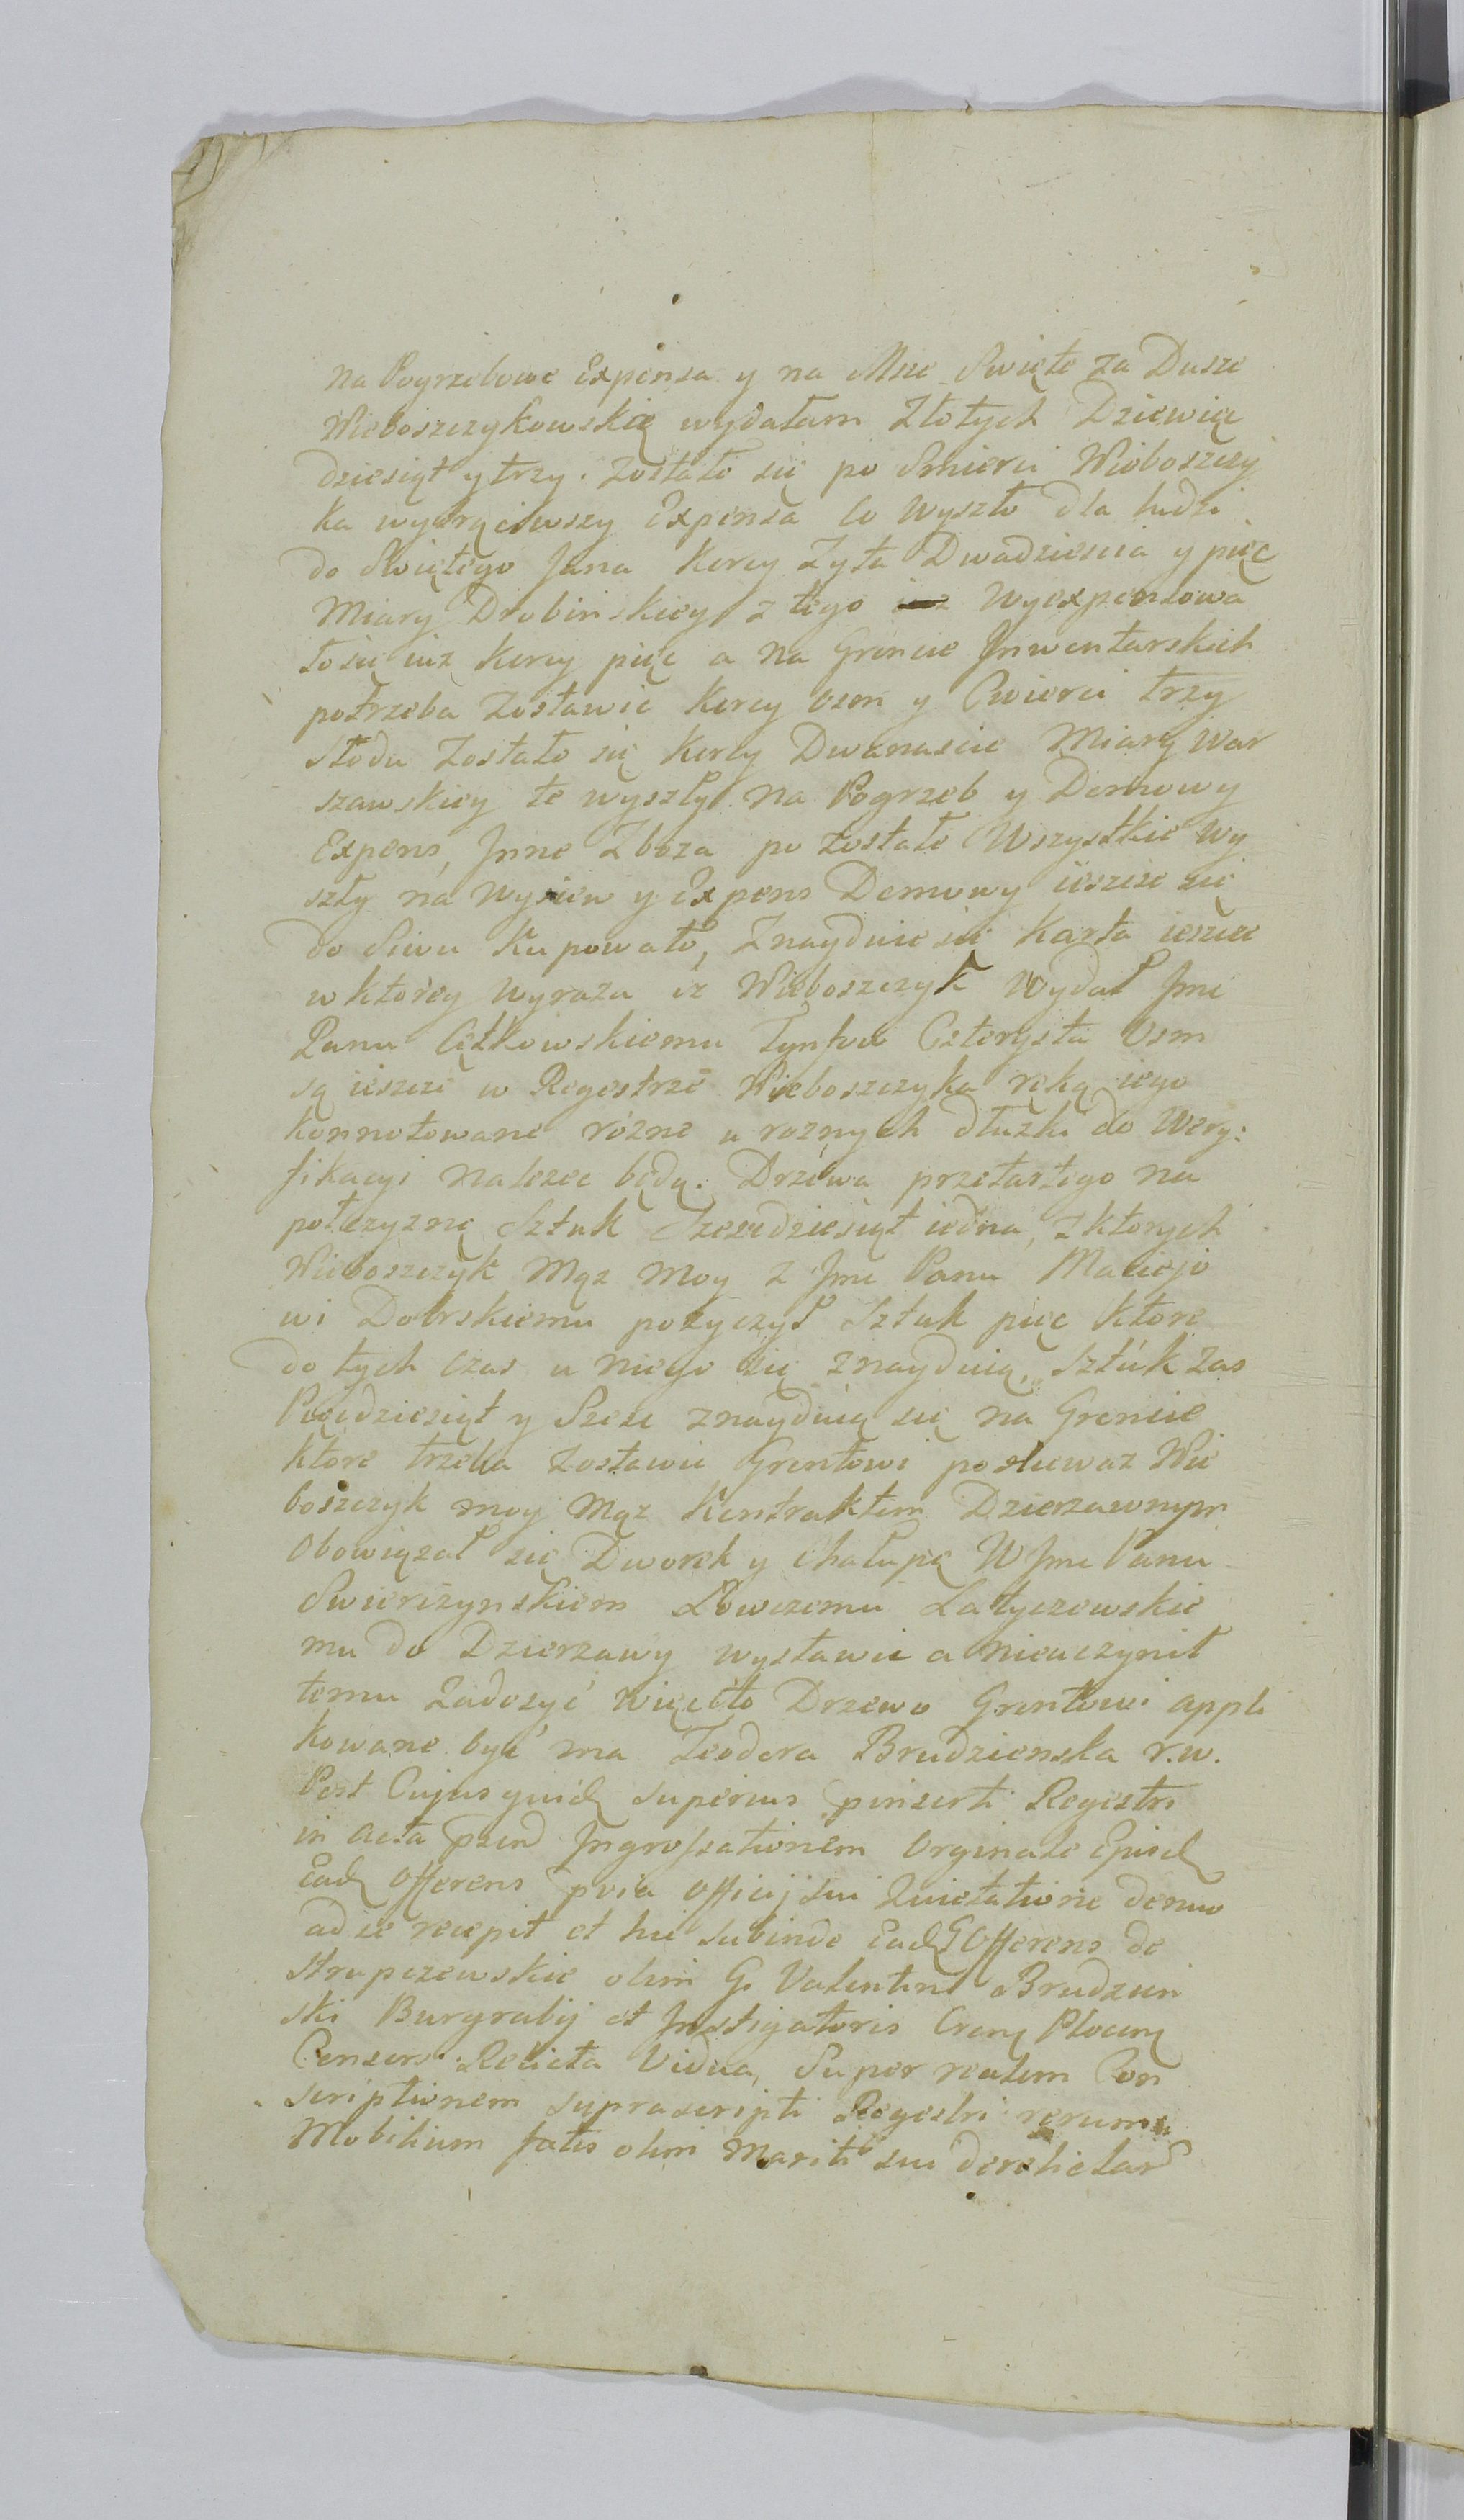 na Pogrzebowe Expensa y na Msze Swięte za Dusze
Nieboszczykowskię wydałam Złotych Dziewięc
dziesiąt y trzy. Zostało się po Smierci Nieboszczy
ka wytrąciwszy Expensa co wyszło dla ludzi
do Swiętego Jana Korcy Zyta Dwadziescia y pięc
Miary Drobinskiey z tego Wyexpensowa
ło się iuz Korcy pięc a na Groncie Jnwentarskich
potrzeba Zostawic Korcy osm y Cwierci trzy
Słodu Zostało się Korcy Dwanascie Miary War
szawskiey te wyszły na Pogrzeb y Domowy
Expens, Jnne Zboza po zostałe Wszystkie wy
szły na wysiew y Expens Domowy ieszcze się
do Siwu Kupowało, Znayduie się Karta ieszcze
w ktorey wyraza iz Nieboszczyk Wydał Jmc
Panu Cętkowskiemu Tynfow Czterysta Osm
są ieszcze w Regestrze Nieboszczyka ręką iego
konnotowane rózne u roznych dłuzki do Wery:
fikacyi nalezec będą. Drzéwa przetartego na
połczyznę Sztuk Szescdziesiąt iedna, z ktorych
Nieboszczyk Mąz Moy z Jmc Panu Maciejo
wi Dobrskiemu pozyczył Sztuk pięc ktore
do tych czas u niego się znayduią, Sztúk zas
Pięcdziesiąt y Szesc znayduią się na Groncie
które trzeba Zostawic Grontowi poniewaz Nie
boszczyk moy Mąz Kontraktem Dzierzawnym
Obowiązał się Dworek y chałupę W Jmc Panu
Swierczynskiem Łowczemu Latyczewskie
mu do Dzierzawy wystawic a nieuczynił
temu Zadosyć więc to Drzewo Grontowi appli
kowane być ma Teodora Brudzienska r.w.
Post Cujus quid superius pinserti Regestri
in Acta pzend Jngrossationem Orginale Ejusd
Ead Offerens pvia officij sui Quietatione denuo
ad se recepit et hic subinde Ead G Offerens de
Strupczewskie olim G. Valentini Brudzien
ski Burgrabij et Jnstigatoris Cren Plocen
Consors Relicta Vidua, Super realem Con
scriptionem suprascripti Regestri rerum
Mobilium fatis olim Mariti sui derelictar